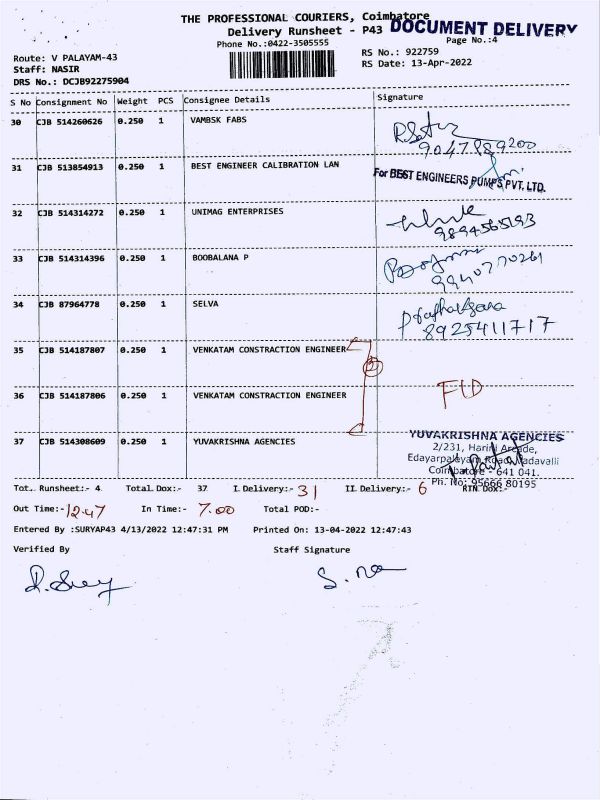 THE PROFESSIONAL COURIERS, Coimbatore
DOCUMENT DELIVERY
Delivery Runsheet - P43
Phone No.:0422-3505555
Page No.:4
Route: V PALAYAM-43
RS No.: 922759
Staff: NASIR
RS Date: 13-Apr-2022
DRS No.: DCJB92275904
S No Consignment No Weight PCS Consignee Details Signature
30 CJB 514260626 0.250 1 VAMBSK FABS
9047889200
31 CJB 513854913 0.250 1 BEST ENGINEER CALIBRATION LAN
For BEST ENGINEERS PUMPS PVT. LTD.
32 CJB 514314272 0.250 1 UNIMAG ENTERPRISES
9894565193
33 CJB 514314396 0.250 1 BOOBALANA P
9940770261
34 CJB 87964778 0.250 1 SELVA
8925411717
35 CJB 514187807 0.250 1 VENKATAM CONSTRACTION ENGINEER
36 CJB 514187806 0.250 1 VENKATAM CONSTRACTION ENGINEER
37 CJB 514308609 0.250 1 YUVAKRISHNA AGENCIES
YUVAKRISHNA AGENCIES
2/231, Harini Arcade,
Edayarpalayam Road, Vadavalli
Coimbatore - 641 041.
Ph. No: 95666 80195
Tot. Runsheet:- 4 Total Dox:- 37 I. Delivery:- 31 II Delivery:- 6 RTN Dox:-
Out Time:- 12.47 In Time:- 7.00 Total POD:-
Entered By :SURYAP43 4/13/2022 12:47:31 PM Printed On: 13-04-2022 12:47:43
Verified By Staff Signature